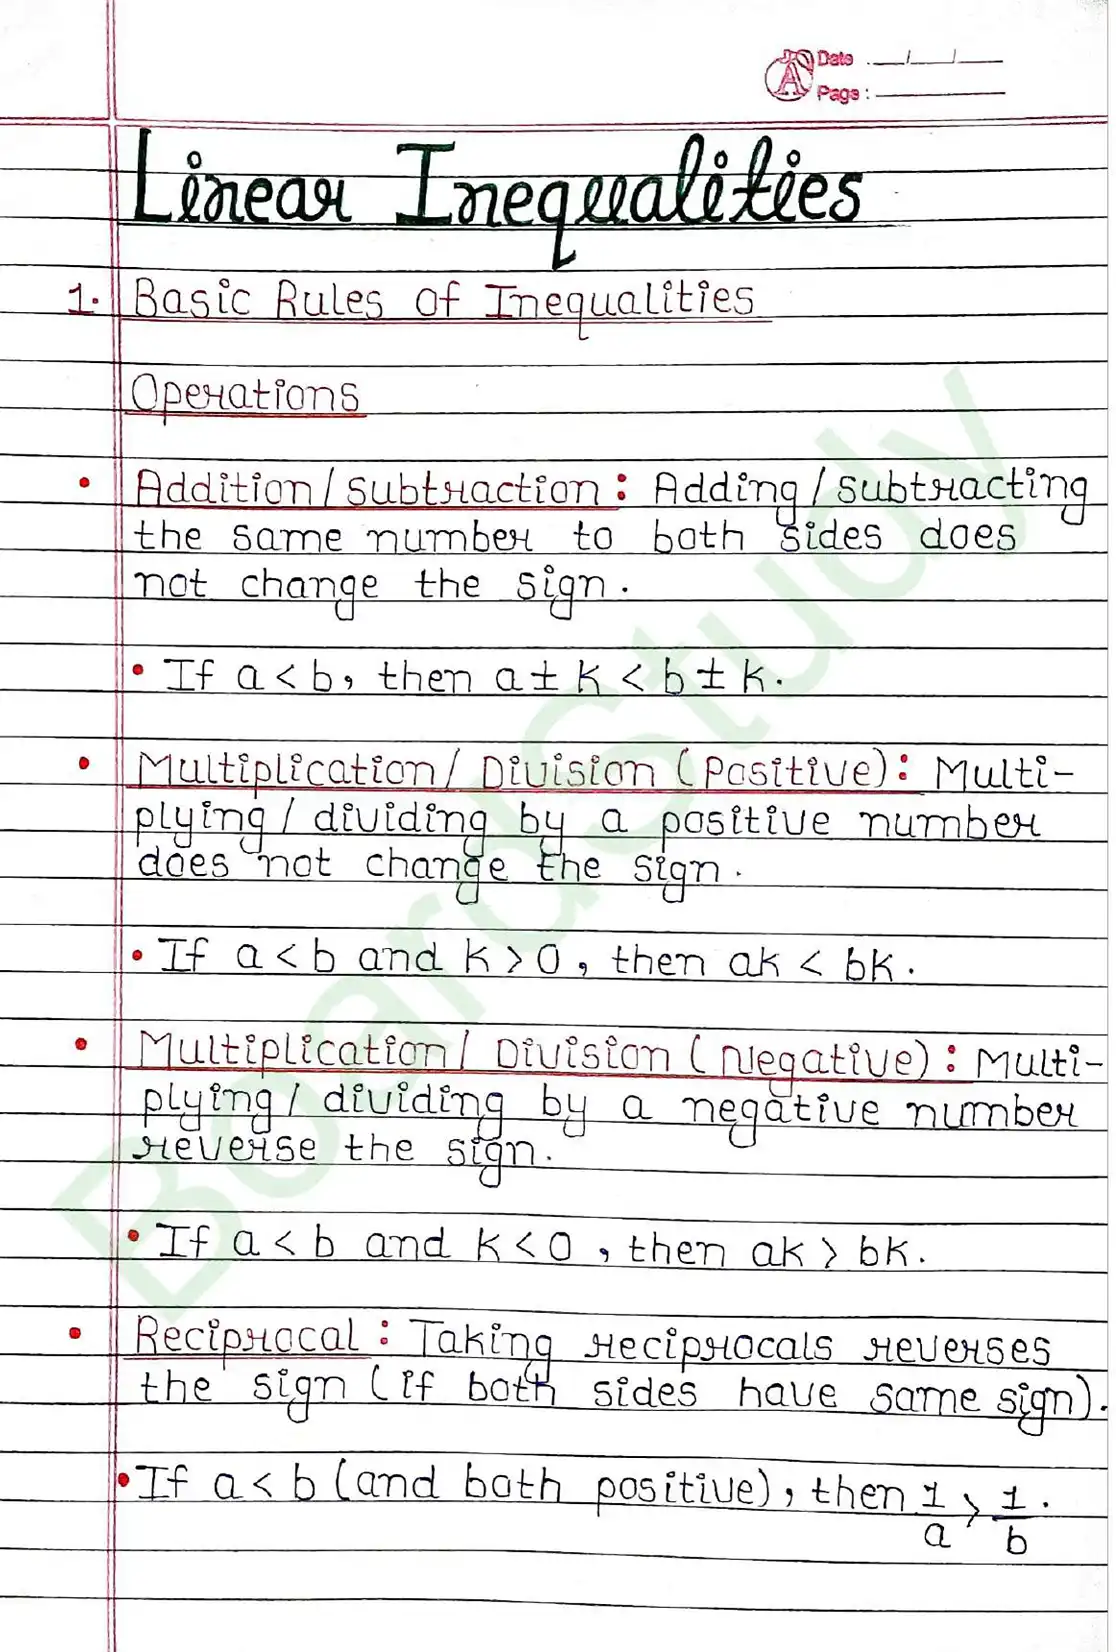 Date : __/__/__
Page :
Linear Inequalities
1. Basic Rules of Inequalities
Operations
• Addition / Subtraction : Adding / subtracting
the same number to both sides does
not change the sign.
• If a < b, then a ± k < b ± k.
• Multiplication / Division (Positive) : Multi-
plying / dividing by a positive number
does not change the sign.
• If a < b and k > 0, then ak < bk.
• Multiplication / Division (Negative) : Multi-
plying / dividing by a negative number
reverse the sign.
• If a < b and k < 0, then ak > bk.
• Reciprocal : Taking reciprocals reverses
the sign (if both sides have same sign).
• If a < b (and both positive), then 1/a > 1/b.
BoardStudy